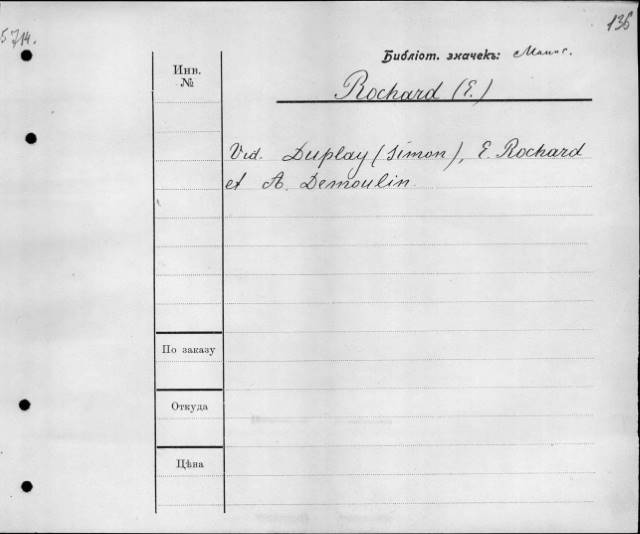 5714.
136
Библіот. значекъ:
Инв.
№
Rochard (E.)
Vid. Duplay (Simon), E. Rochard
et A. Demoulin.
По заказу
Откуда
Цѣна